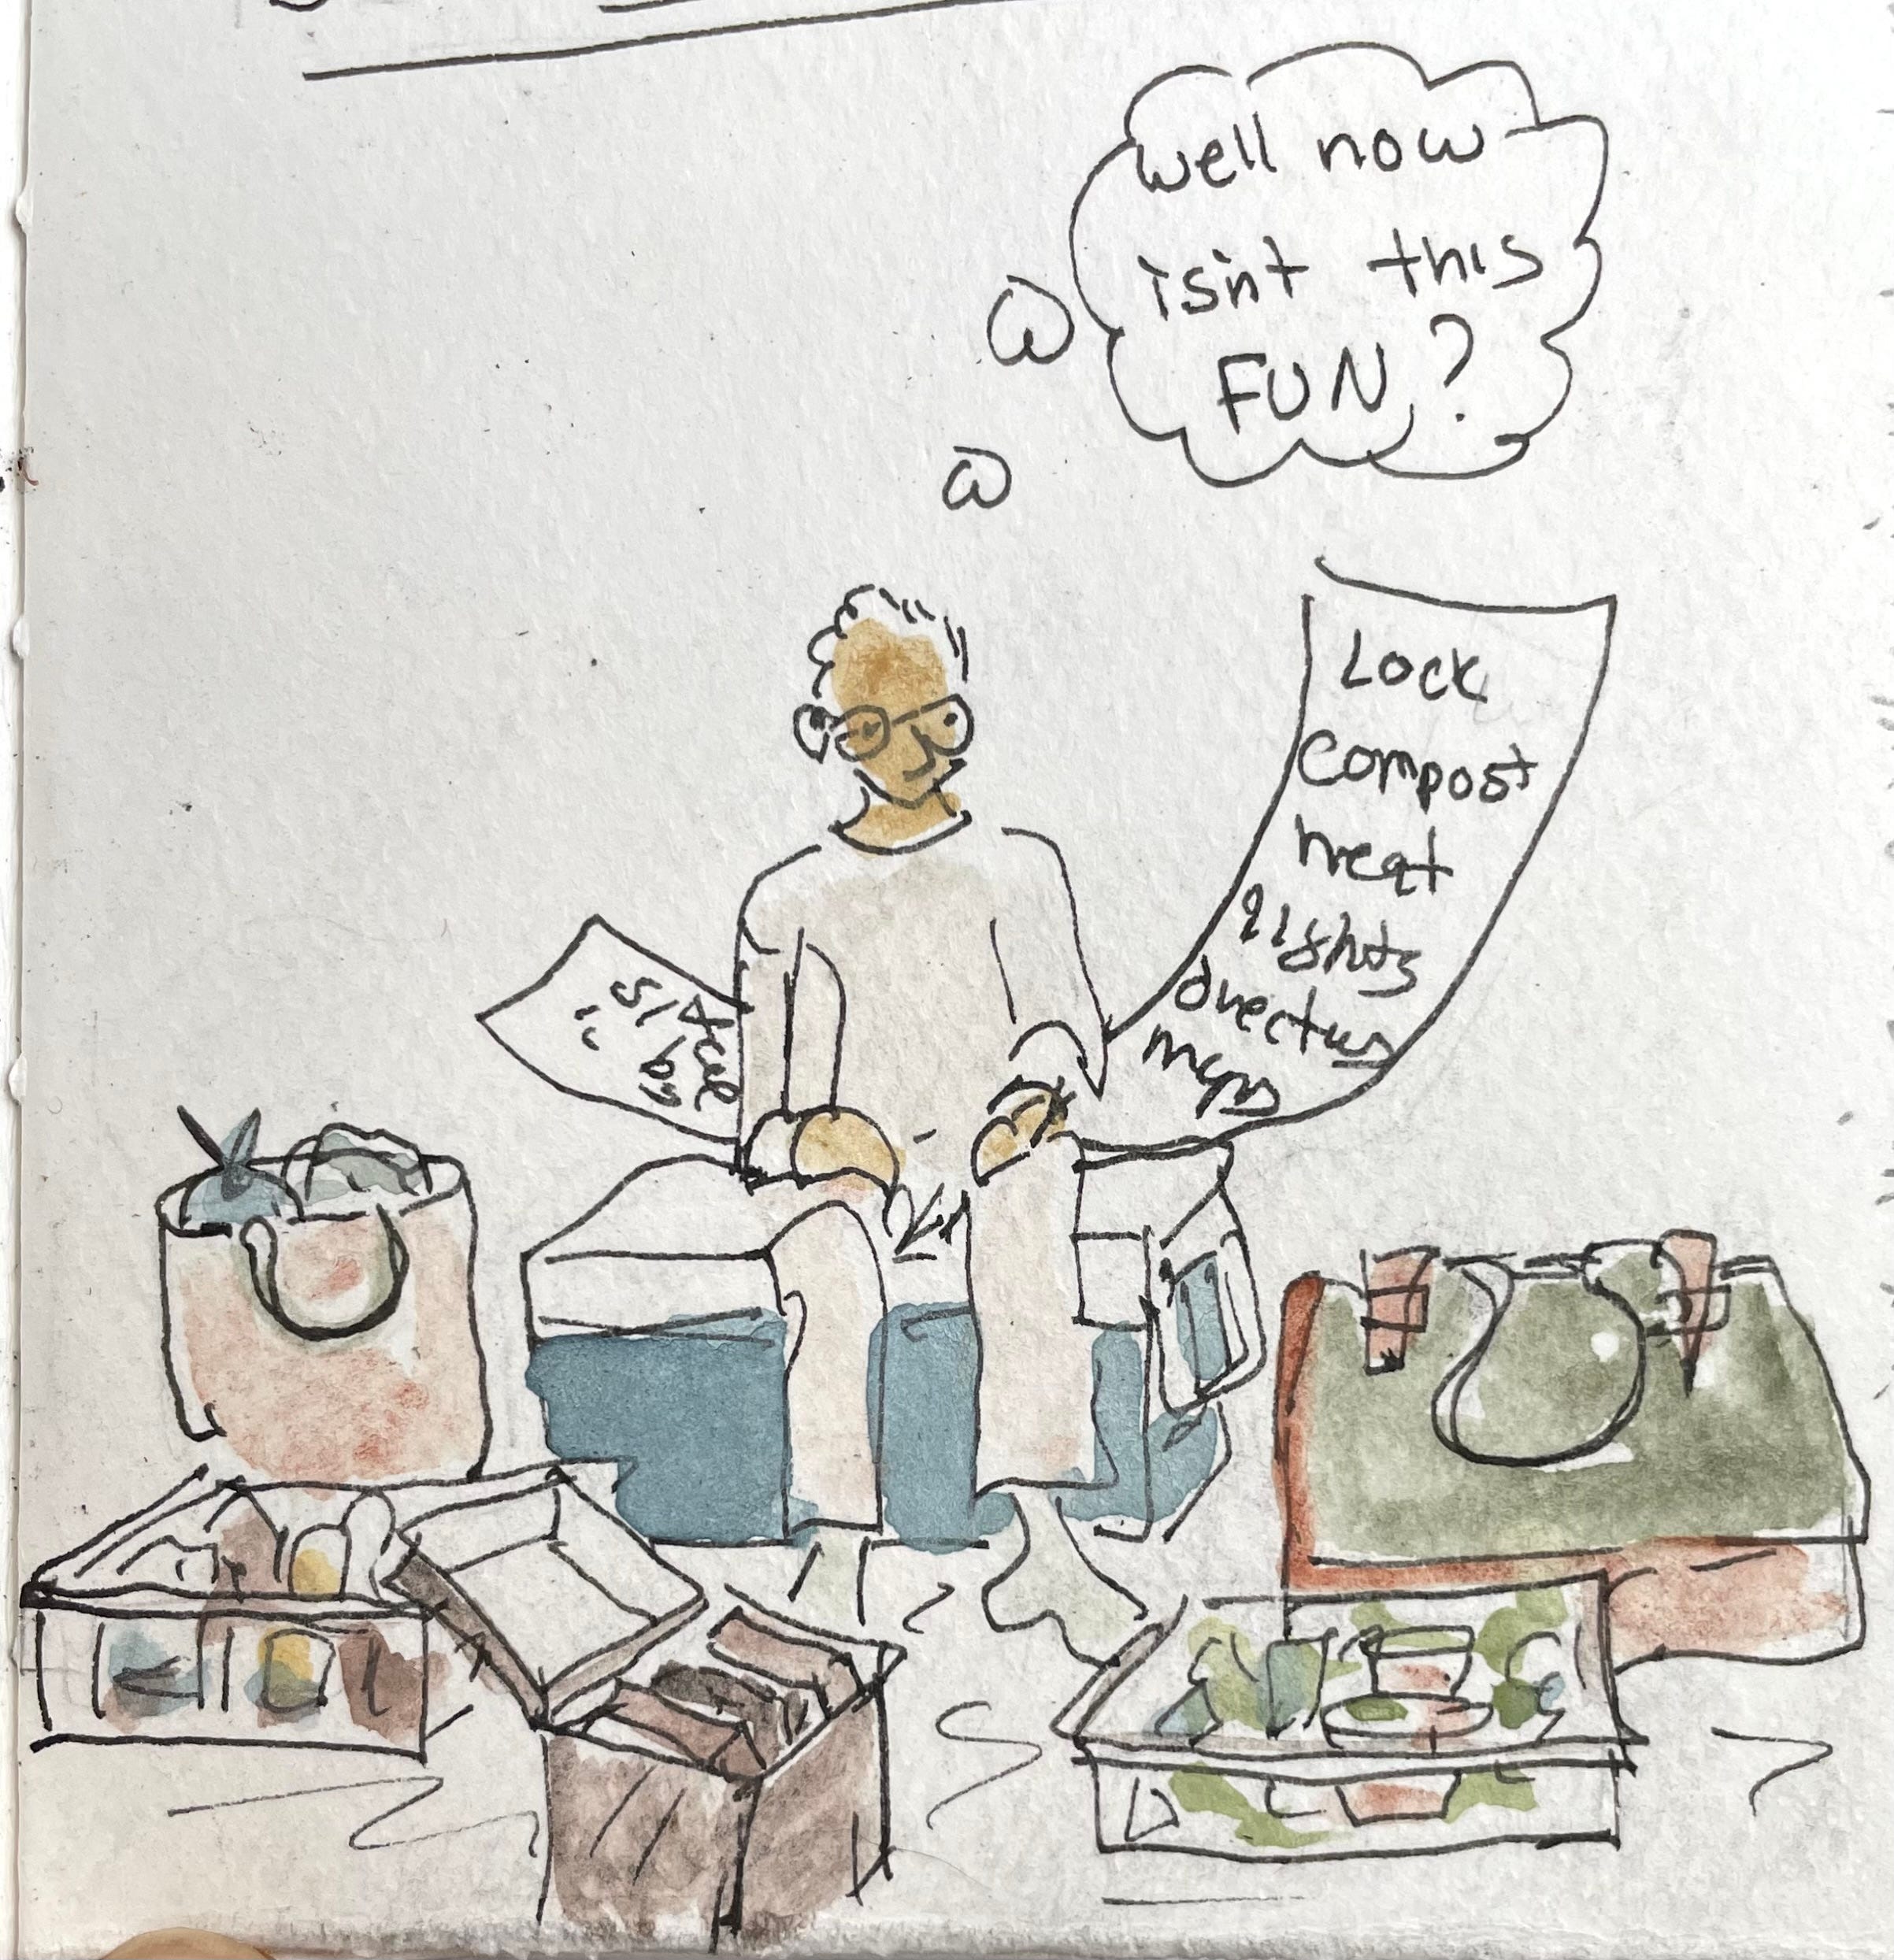 well now
isn't this
FUN?
Lock
compost
heat
lights
directions
maps